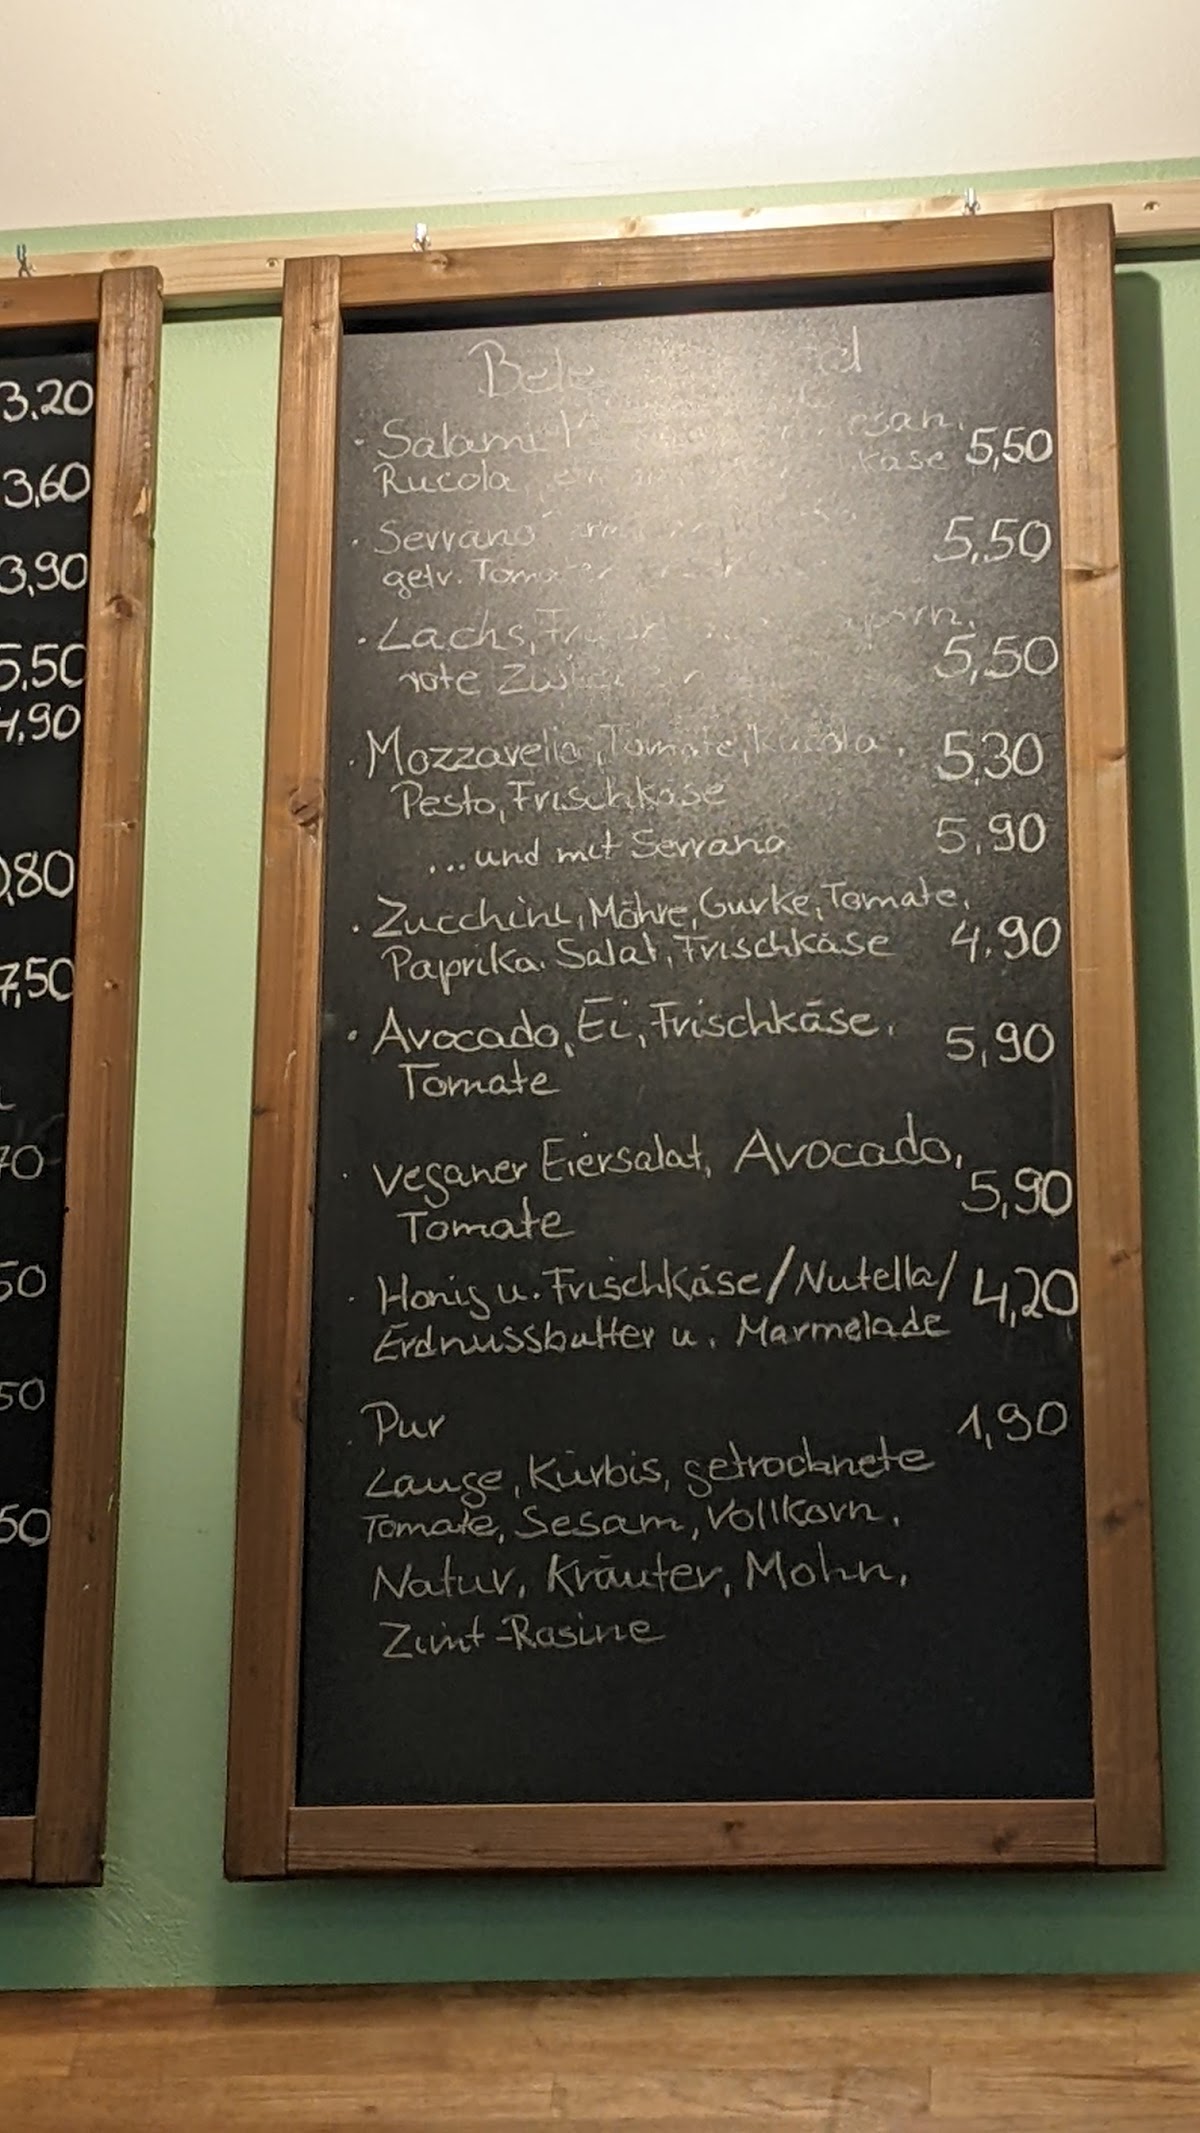 3,20
3,60
3,90
5,50
4,90
0,80
7,50
70
50
50
50
· Salami
Rucola 5,50
· Serrano
getr. 5,50
· Lachs,
rote 5,50
· Mozzarella, Tomate, Rucola, 5,30
Pesto, Frischkäse
...und mit Serrano 5,90
· Zucchini, Möhre, Gurke, Tomate,
Paprika. Salat, Frischkäse 4.90
· Avocado, Ei, Frischkäse, 5,90
Tomate
· veganer Eiersalat, Avocado,
Tomate 5,90
· Honig u. Frischkäse/Nutella/ 4,20
Erdnussbutter u. Marmelade
· Pur 1,90
Lauge, Kürbis, getrocknete
Tomate, Sesam, Vollkorn,
Natur, Kräuter, Mohn,
Zimt-Rosine